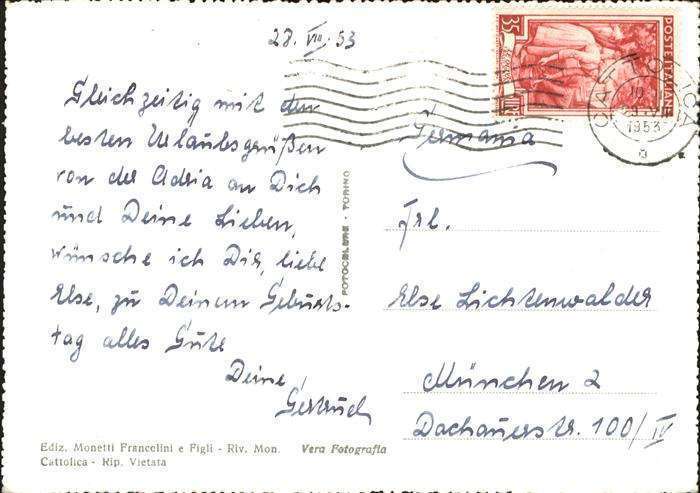 28. VIII. 53
Gleichzeitig mit den
besten Urlaubsgrüßen
von der Adria an Dich
und Deine Lieben,
wünsche ich Dir, liebe
Else, zu Deinem Geburts-
tag alles Gute
Deine
Gertrud
Ediz. Monetti Francolini e Figli - Riv. Mon.
Cattolica - Rip. Vietata
Vera Fotografia
FOTOCELERE - TORINO
35
POSTE ITALIANE
CATTOLICA
1953
Germania
Frl.
Else Lichtenwalder
München 2
Dachauerstr. 100/IV